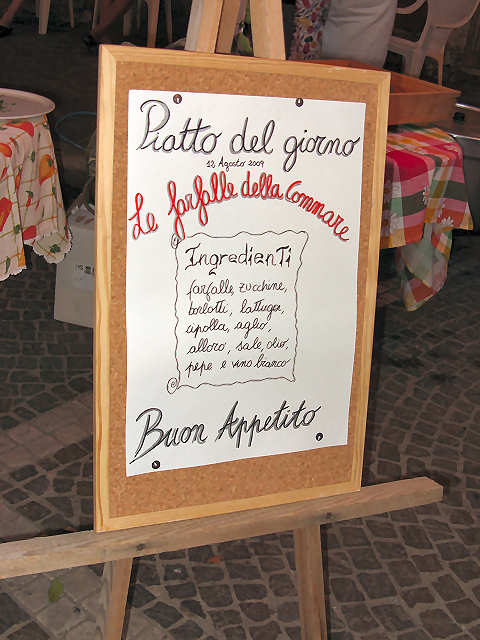 Piatto del giorno
12 Agosto 2009
Le farfalle della Commare
Ingredienti
farfalle, zucchine,
borlotti, lattuga,
cipolla, aglio,
alloro, sale, olio,
pepe e vino bianco
Buon Appetito